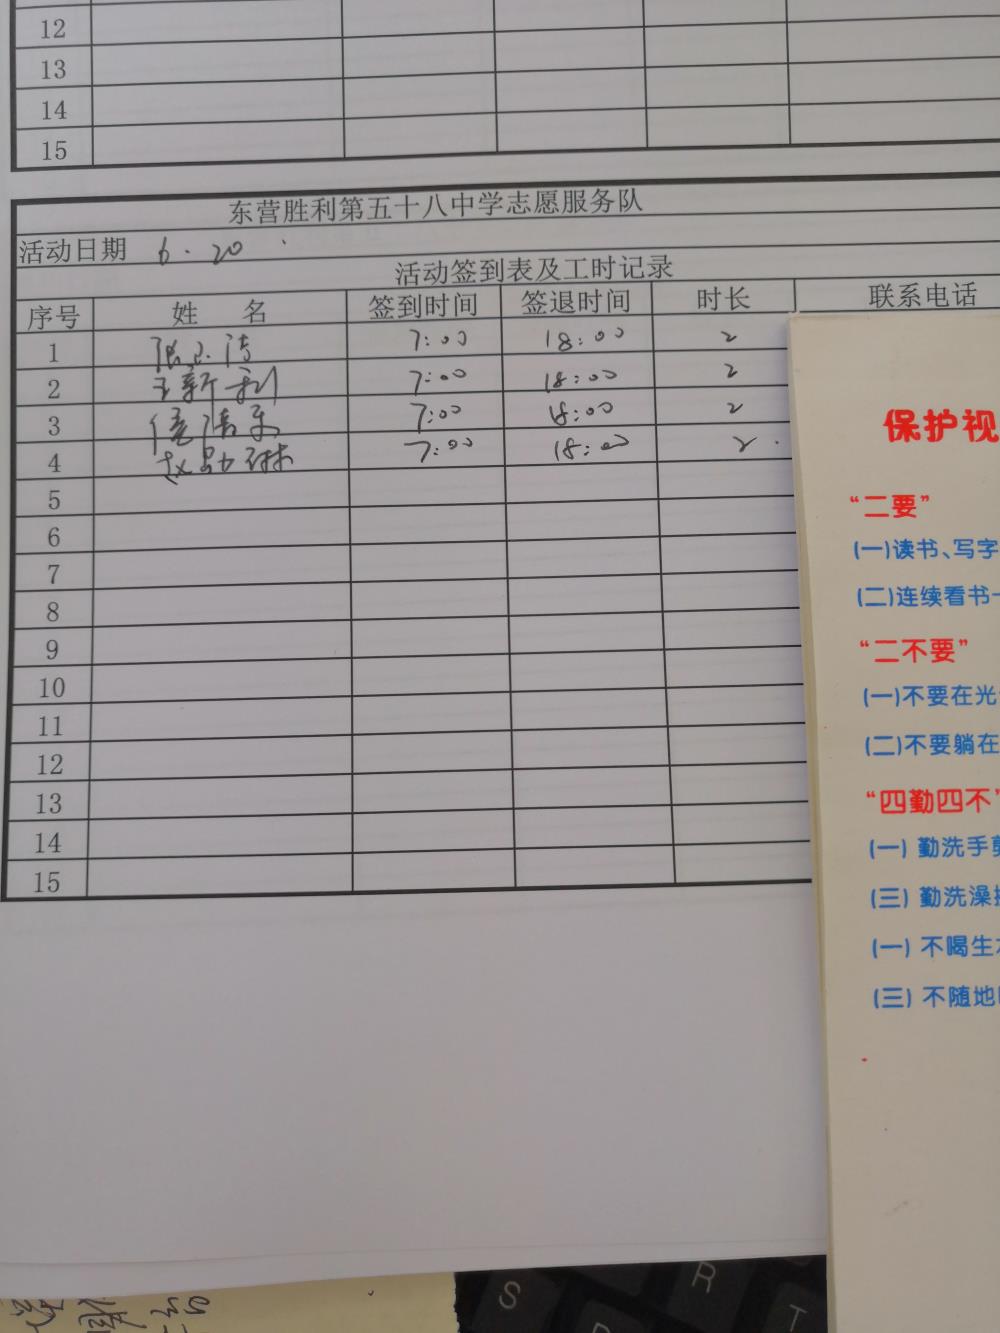 12
13
14
15
东营胜利第五十八中学志愿服务队
活动日期 6.20.
活动签到表及工时记录
序号 姓 名 签到时间 签退时间 时长 联系电话
1 7:00 18:00 2
2 王新利 7:00 18:00 2
3 7:00 18:00 2
4 7:00 18:00 2.
5
6
7
8
9
10
11
12
13
14
15
保护视
“二要”
(一)读书、写字
(二)连续看书一
“二不要”
(一)不要在光
(二)不要躺在
“四勤四不”
(一) 勤洗手剪
(三) 勤洗澡
(一) 不喝生水
(三) 不随地
S R
T